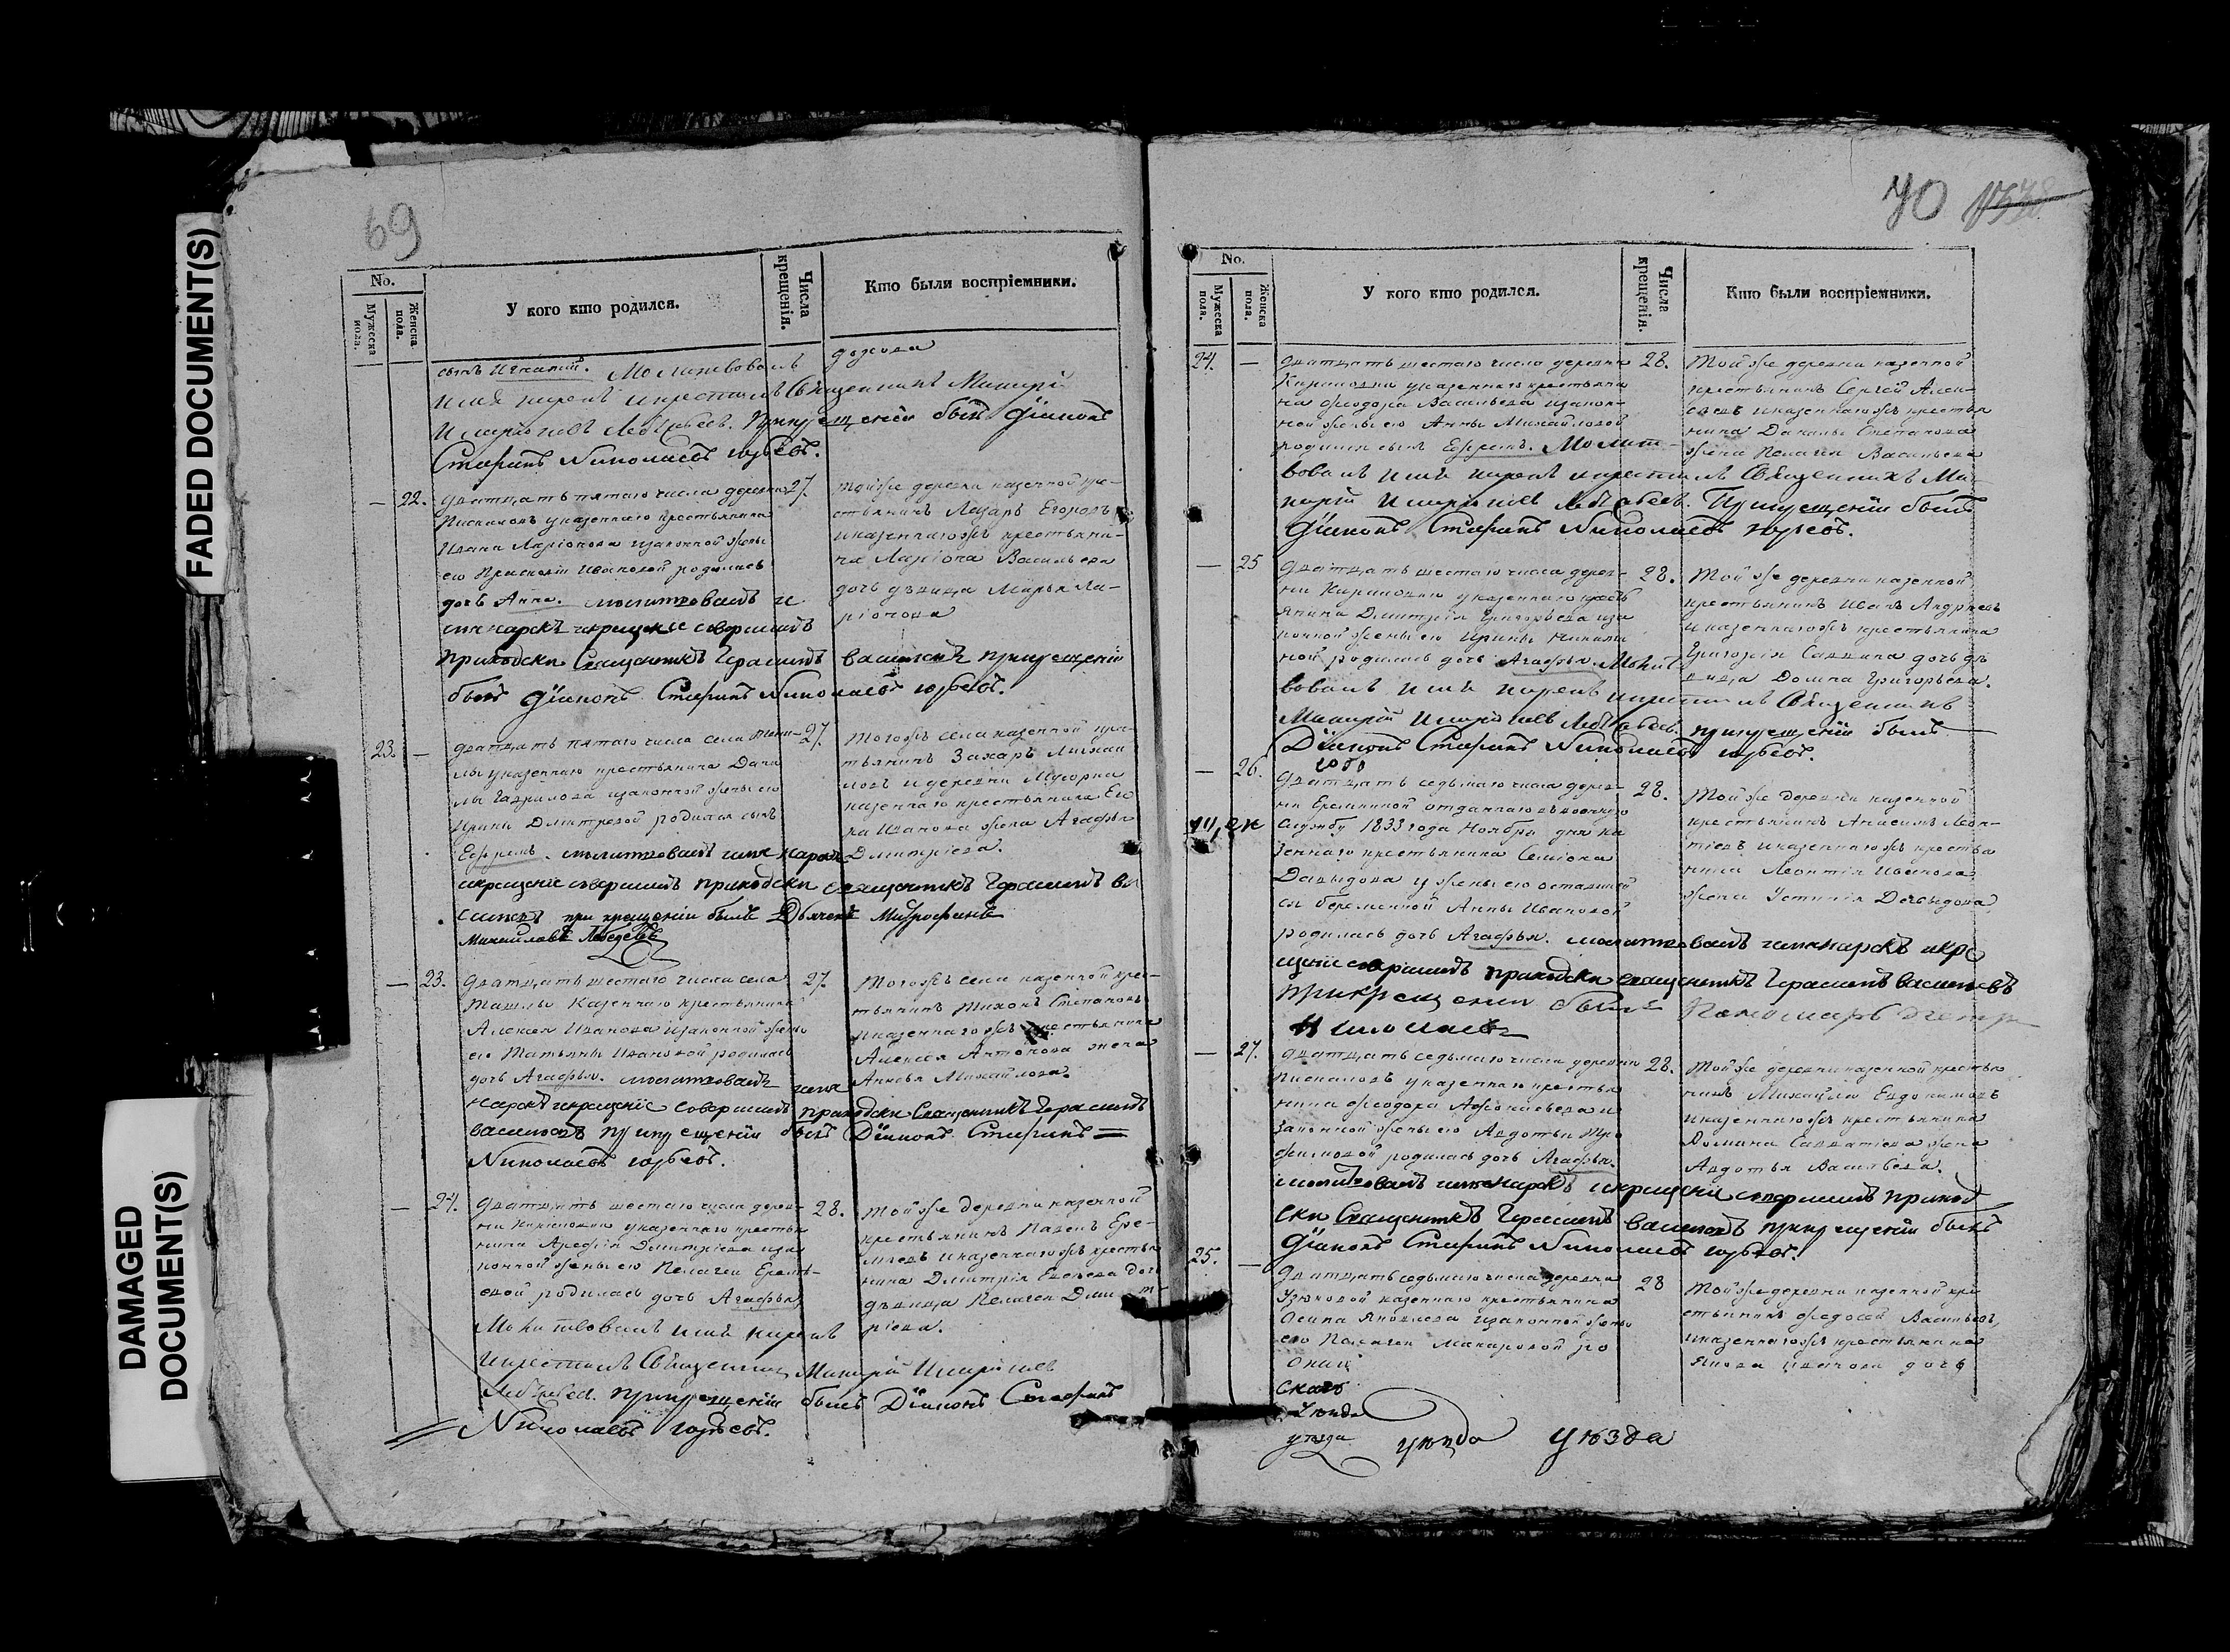 FADED DOCUMENT(S)
DAMAGED
DOCUMENT(S)
69
No.
Мужеска пола.
Женска пола.
У кого кто родился.
Числа крещенія.
Кто были воспріемники.
сынъ Игнатій. Молитвовалъ
имя нарекъ и крестилъ Священникъ Макарій
Иларіоновъ Лебедевъ. При крещеніи былъ Діаконъ
Стефанъ Николаевъ
— 22. дватцать пятаго числа деревни 27.
Пискаловъ у казеннаго крестьянина
Ивана Ларіонова изаконной жены
его Прасковіи Ивановой родилась
дочь Анна. молитвовалъ и
имя нарекъ и крещеніе совершилъ
приходски Священникъ Герасимъ Васильевъ при крещеніи
былъ Діаконъ Стефанъ Николаевъ
тойже деревни казенной кре-
стьянинъ Лазарь Егоровъ
и казеннагожъ крестьяни-
на Ларіона Васильева
дочь дѣвица Марья Ла-
ріонова
23. — дватцать пятаго числа села 27.
у казеннаго крестьянина Дани
лы Гаврилова изаконной жены его
Ирины Дмитревой родился сынъ
Ефремъ. молитвовалъ имя нарекъ
и крещеніе совершилъ приходски священникъ Герасимъ Ва
сильевъ при крещеніи былъ Дьячекъ Митрофанъ
Михайловъ Лебедевъ
Тогожъ села казенной крес-
тьянинъ Захаръ
ловъ и деревни Мусорки
казеннаго крестьянина
Иванова жена Агафья
Дмитріева.
— 23. дватцать шестаго числа села 27.
Ташлы казеннаго крестьянина
Алексея Иванова изаконной жены
его Татьяны Ивановой родилась
дочь Агафья. молитвовалъ имя
нарекъ и крещеніе совершилъ приходски Священникъ Герасимъ
Васильевъ при крещеніи былъ Діаконъ Стефанъ
Николаевъ
Тогожъ села казенной крес-
тьянинъ Тихонъ Степановъ
и казеннагожъ крестьянина
Алексея Антонова жена
Анисья Михайлова.
— 24. дватцать шестаго числа дерев- 28.
ни Кириловки у казеннаго крестья
нина Арефія Дмитріева иза
конной жены его Пелагеи Ереме-
евой родилась дочь Агафья
Молитвовалъ имя нарекъ
и крестилъ Священникъ Макарій Иларіоновъ
Лебедевъ. При крещеніи былъ Діаконъ Стефанъ
Николаевъ
Тойже деревни казенной
крестьянинъ Павелъ Ере-
меевъ и казеннагожъ крестья
нина Дмитрія дочь
дѣвица Пелагея Дмит-
ріева.
70
No.
Мужеска пола.
Женска пола.
У кого кто родился.
Числа крещенія.
Кто были воспріемники.
24. — дватцать шестаго числа деревни 28.
Кириловки у казеннаго крестьяни
на Феодора Васильева изакон-
ной жены его Анны Михайловой
родился сынъ Ефремъ. Молит-
вовалъ имя нарекъ и крестилъ Священникъ Ма-
карій Иларіоновъ Лебедевъ. При крещеніи былъ
Діаконъ Стефанъ Николаевъ
Тойже деревни казенной
крестьянинъ Сергей Алек-
сеевъ и казеннагожъ крестья
нина Данилы Степанова
жена Пелагея Васильева
— 25 Дватцать шестаго числа дерев- 28.
ни Кириловки у казеннаго кресть
янина Дмитрія Григорьева иза
конной жены его Ирины
ной родилась дочь Агафья. Молит
вовалъ имя нарекъ и крестилъ Священникъ
Макарій Иларіоновъ Лебедевъ. При крещеніи былъ
Діаконъ Стефанъ Николаевъ
Тойже деревни казенной
крестьянинъ Иванъ Андреевъ
и казеннагожъ крестьянина
Григорія Саввина дочь дѣ
вица Домна Григорьева.
— 26. дватцать седьмаго числа дерев- 28.
ни Еремкиной отданнаго въ военную
службу 1833 года Ноября дня ка
зеннаго крестьянина Семіона
Давыдова у жены его оставшей
ся беременной Анны Ивановой
родилась дочь Агафья. молитвовалъ имя нарекъ и кре
щеніе совершилъ приходски священникъ Герасимъ Васильевъ
При крещении былъ Пономарь Петръ
Николаевъ
Тойже деревни казенной
крестьянинъ Анисимъ Леон-
тіевъ и казеннагожъ крестья
нина Леонтія Иванова
жена Устинія Давыдова
— 27. дватцать седьмаго числа деревни 28.
Пискаловъ у казеннаго крестья
нина Феодора Афонасьева и
законной жены его Авдотьи Тро
фимовой родилась дочь Агафья.
молитвовалъ имя нарекъ и крещеніе совершилъ приход
ски Священникъ Герасимъ Васильевъ при крещеніи былъ
Діаконъ Стефанъ Николаевъ
Тойже деревни казенной крестья
нинъ Михайло Евдокимовъ
и казеннагожъ крестьянина
жена
Авдотья Васильева.
25. — Дватцать седьмаго числа деревни 28
Узюковой казеннаго крестьянина
Осипа Яковлева изаконной жены
его Пелагеи Макаровой ро
Тойже деревни казенной кре
стьянинъ Федосей Васильевъ,
и казеннагожъ крестьянина
Якова Иванова дочь
уѣзда
уѣзда